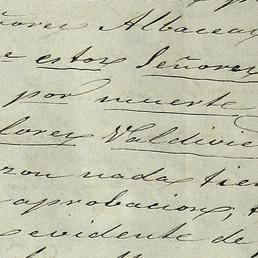 ñores Albaceas
e estos Señores
por muerte
lores Valdivie
zon nada tien
aprobacion, t
evidente de